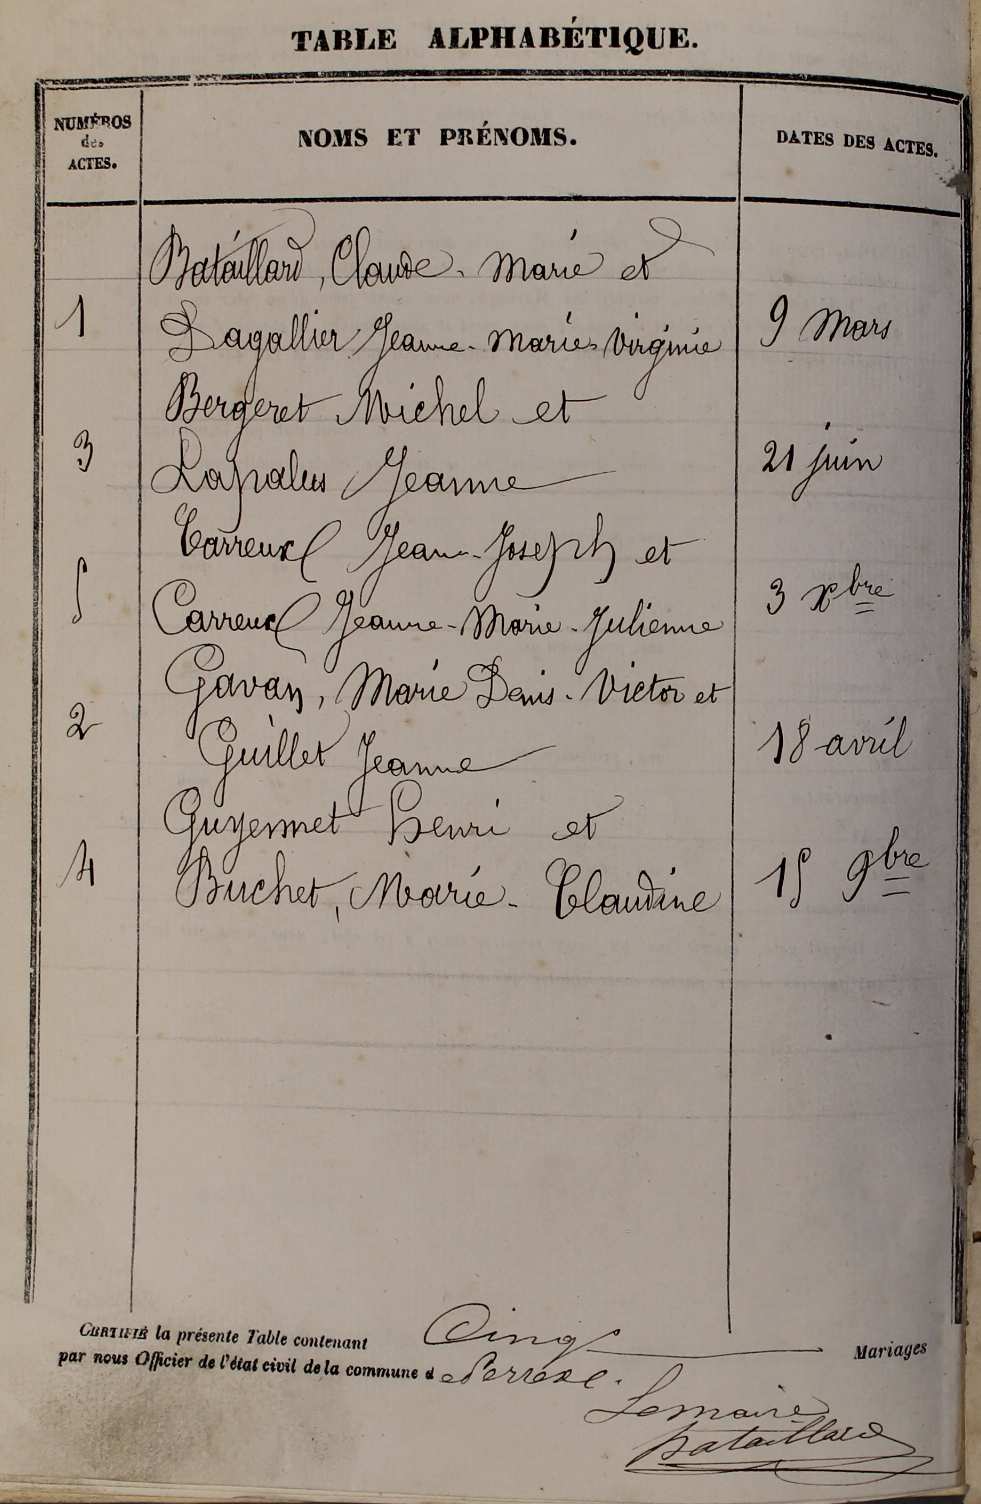 TABLE ALPHABÉTIQUE.
NUMÉROS
des
ACTES.
NOMS ET PRÉNOMS.
DATES DES ACTES.
Bataillard, Claude-Marie et
1 Lagallier Jeanne-Marie-Virginie 9 Mars
Bergeret Michel et
3 Lapalus Jeanne 21 juin
Carreux Jean-Joseph et
5 Carreux Jeanne-Marie-Julienne 3 xbre
Gavan, Marie Denis-Victor et
2 Guillet Jeanne 18 avril
Guyennet Henri et
4 Buchet, Marie-Claudine 15 9bre
CERTIFIÉ la présente Table contenant Cinq Mariages
par nous Officier de l'état civil de la commune d
Le maire
Bataillard